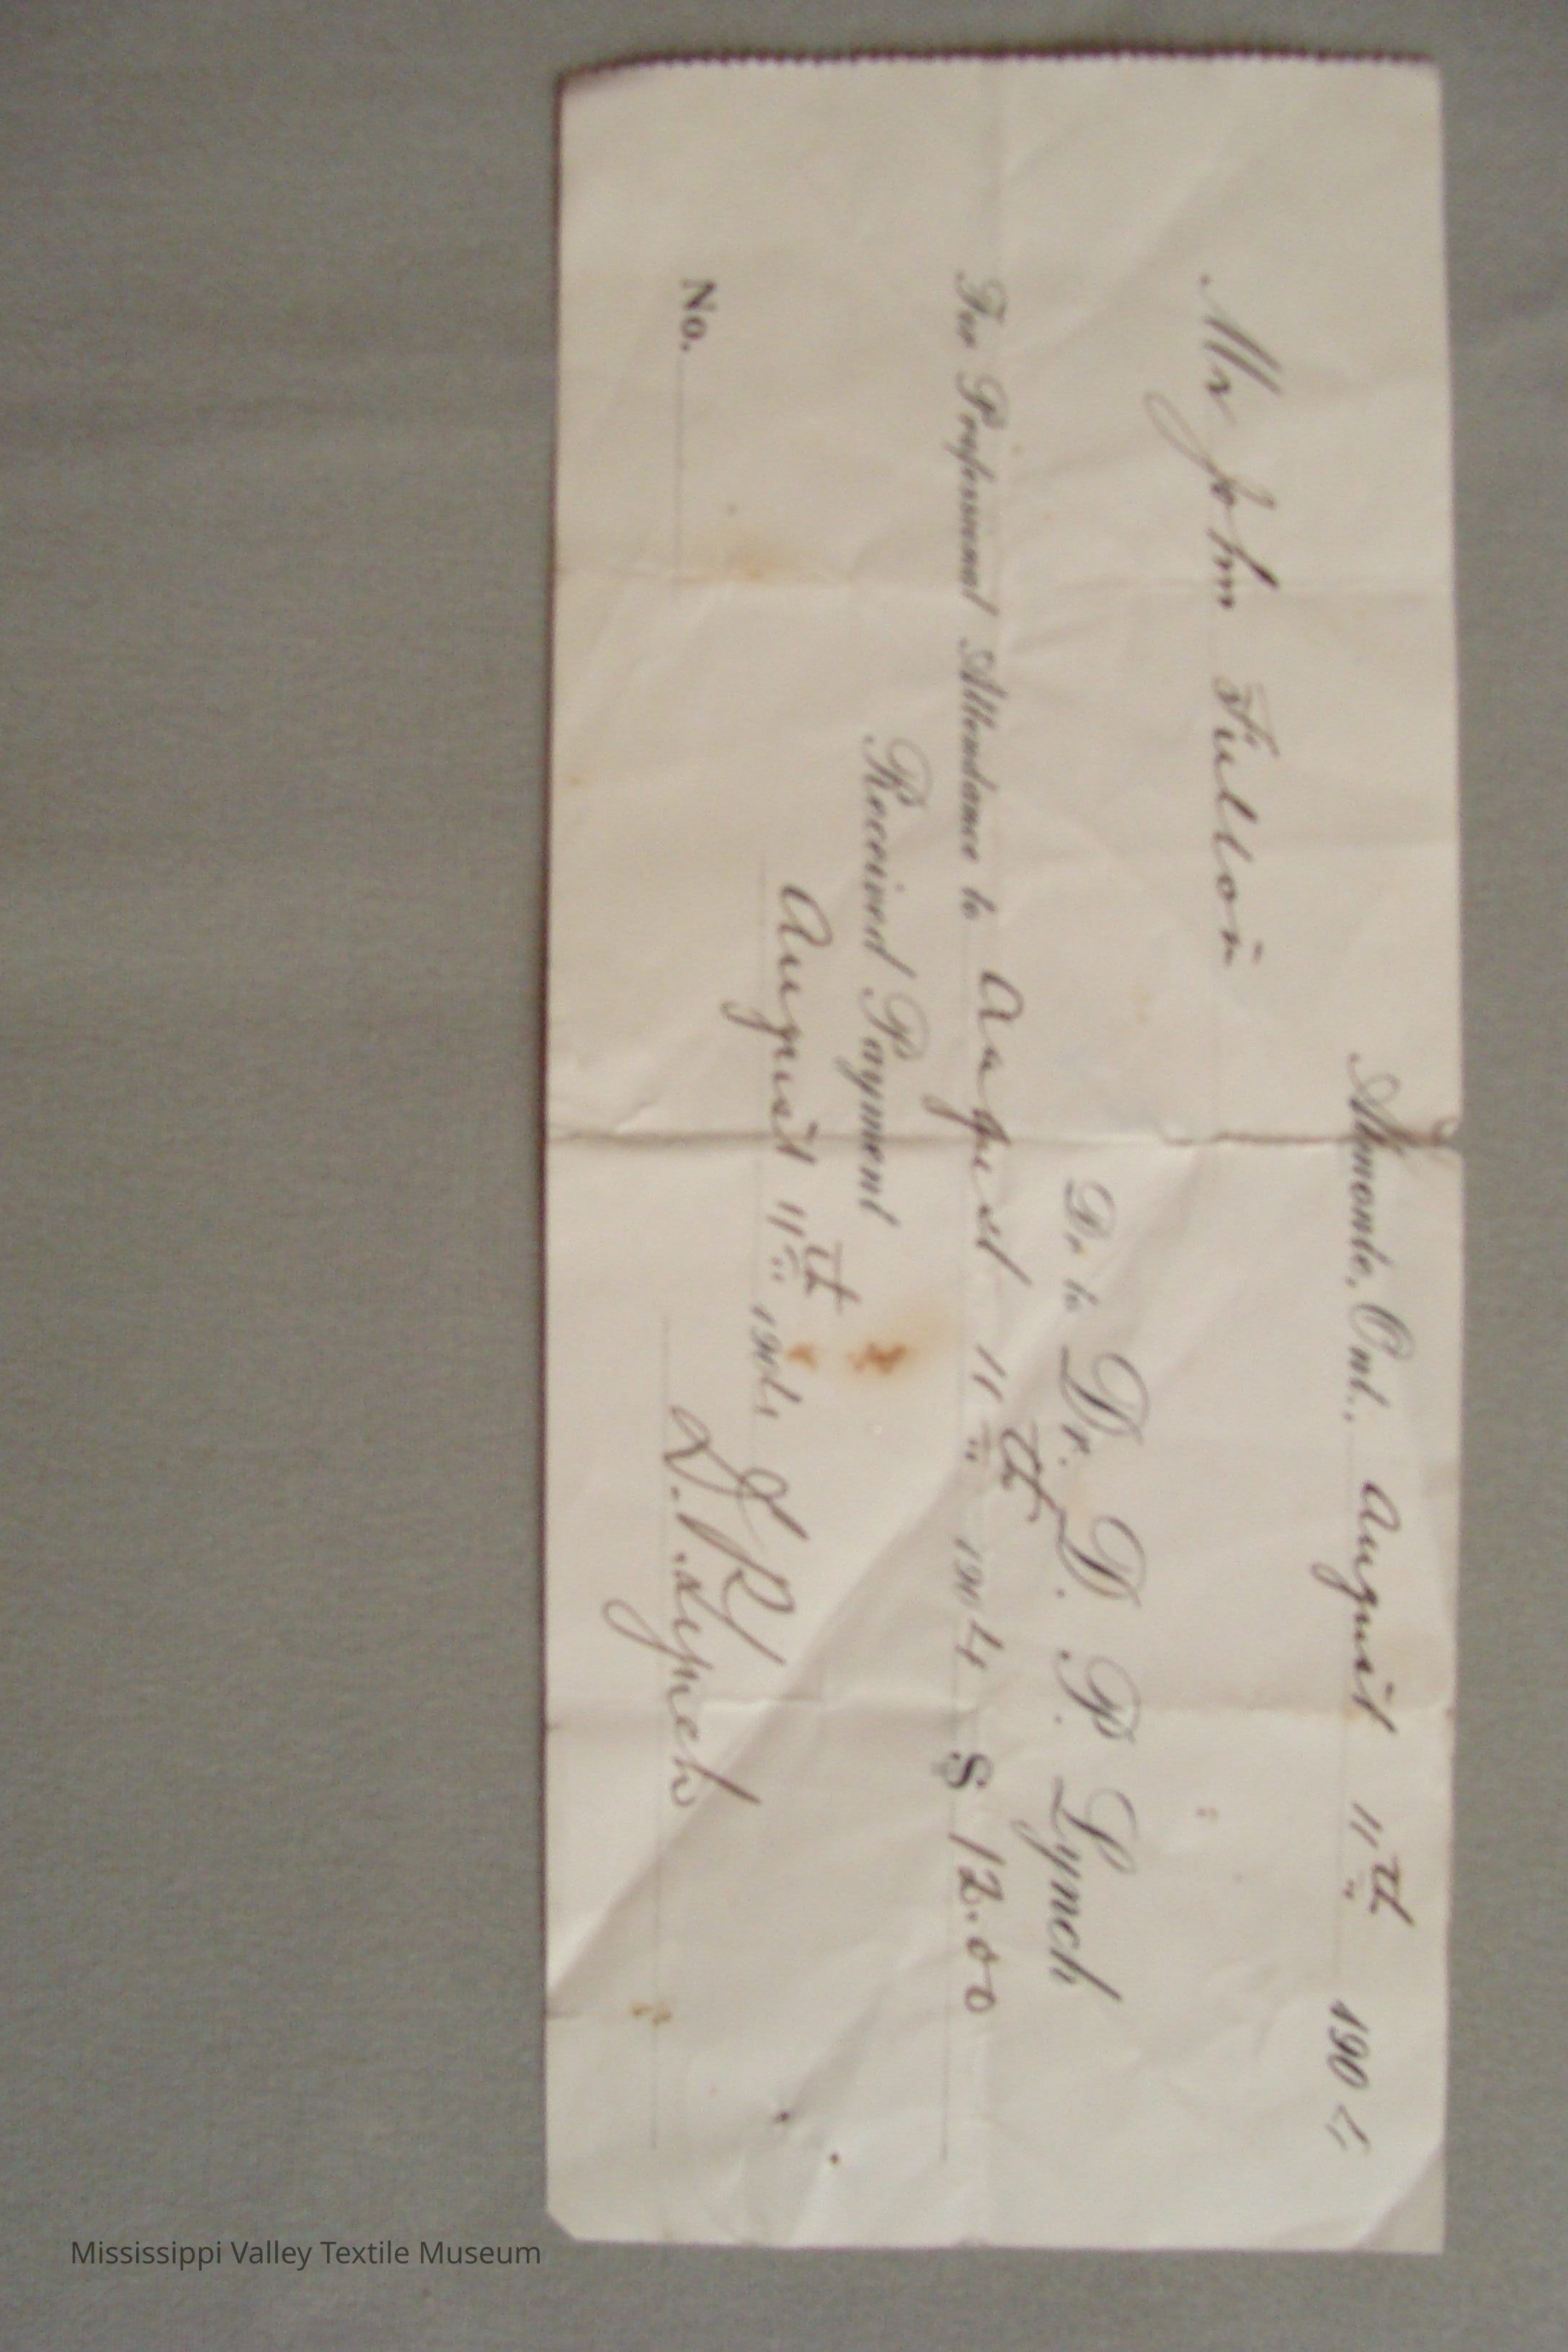 Almonte, Ont., August 11th 1904
Mr John Fulton
Dr. to Dr. D. P. Lynch
For Professional Attendance to August 11th 1904 $ 12.00
Received Payment
August 11th 1904
No. D. P. Lynch
Mississippi Valley Textile Museum